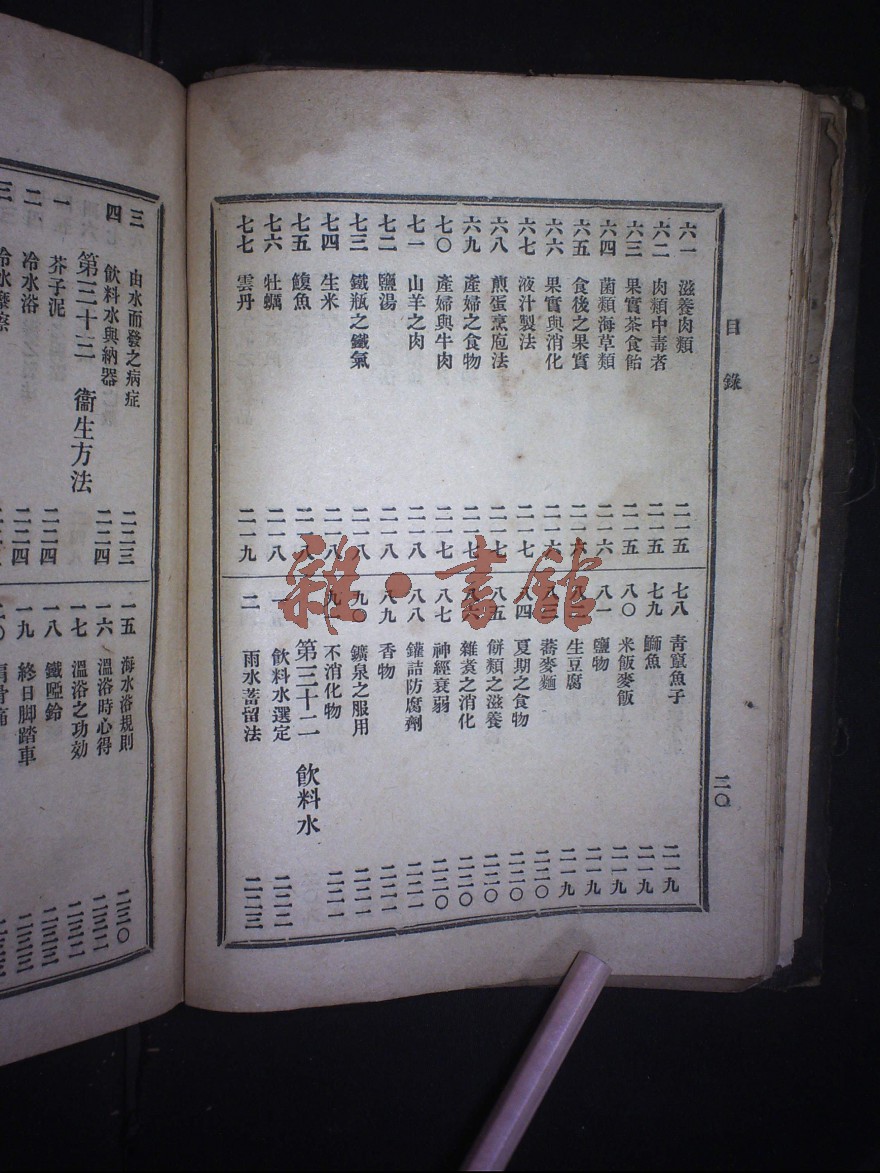 目錄
二〇
六一 滋養肉類 二一五
六二 肉類中毒者 二一五
六三 果實茶食飴 二一五
六四 菌類海草類 二一六
六五 食後之果實 二一六
六六 果實與消化 二一六
六七 液汁製法 二一七
六八 煎蛋烹庖法 二一七
六九 產婦之食物 二一七
七〇 產婦與牛肉 二一七
七一 山羊之肉 二一八
七二 鹽湯 二一八
七三 鐵瓶之鐵氣 二一八
七四 生米 二一八
七五 鰒魚 二一八
七六 牡蠣 二一八
七七 雲丹 二一九
七八 青竄魚子 二一九
七九 鰤魚 二一九
八〇 米飯麥飯 二一九
八一 鹽物 二一九
八二 生豆腐 二一九
八三 蕎麥麵 二二〇
八四 夏期之食物 二二〇
八五 餅類之滋養 二二〇
八六 雜煑之消化 二二〇
八七 神經衰弱 二二〇
八八 鑵詰防腐劑 二二一
八九 香物 二二一
九〇 鑛泉之服用 二二一
九一 不消化物 二二一
第三十二 飲料水
一 飲料水選定 二二二
二 雨水蓄留法 二二三
三 由水而發之病症 二二三
四 飲料水與納器 二二四
第三十三 衞生方法
一 芥子泥 二二四
二 冷水浴 二二四
三 冷水摩擦
一五 海水浴規則 二三〇
一六 溫浴時心得 二三二
一七 溫浴之功効 二三二
一八 鐵啞鈴 二三三
一九 終日脚踏車 二三三
二〇
雜·書館